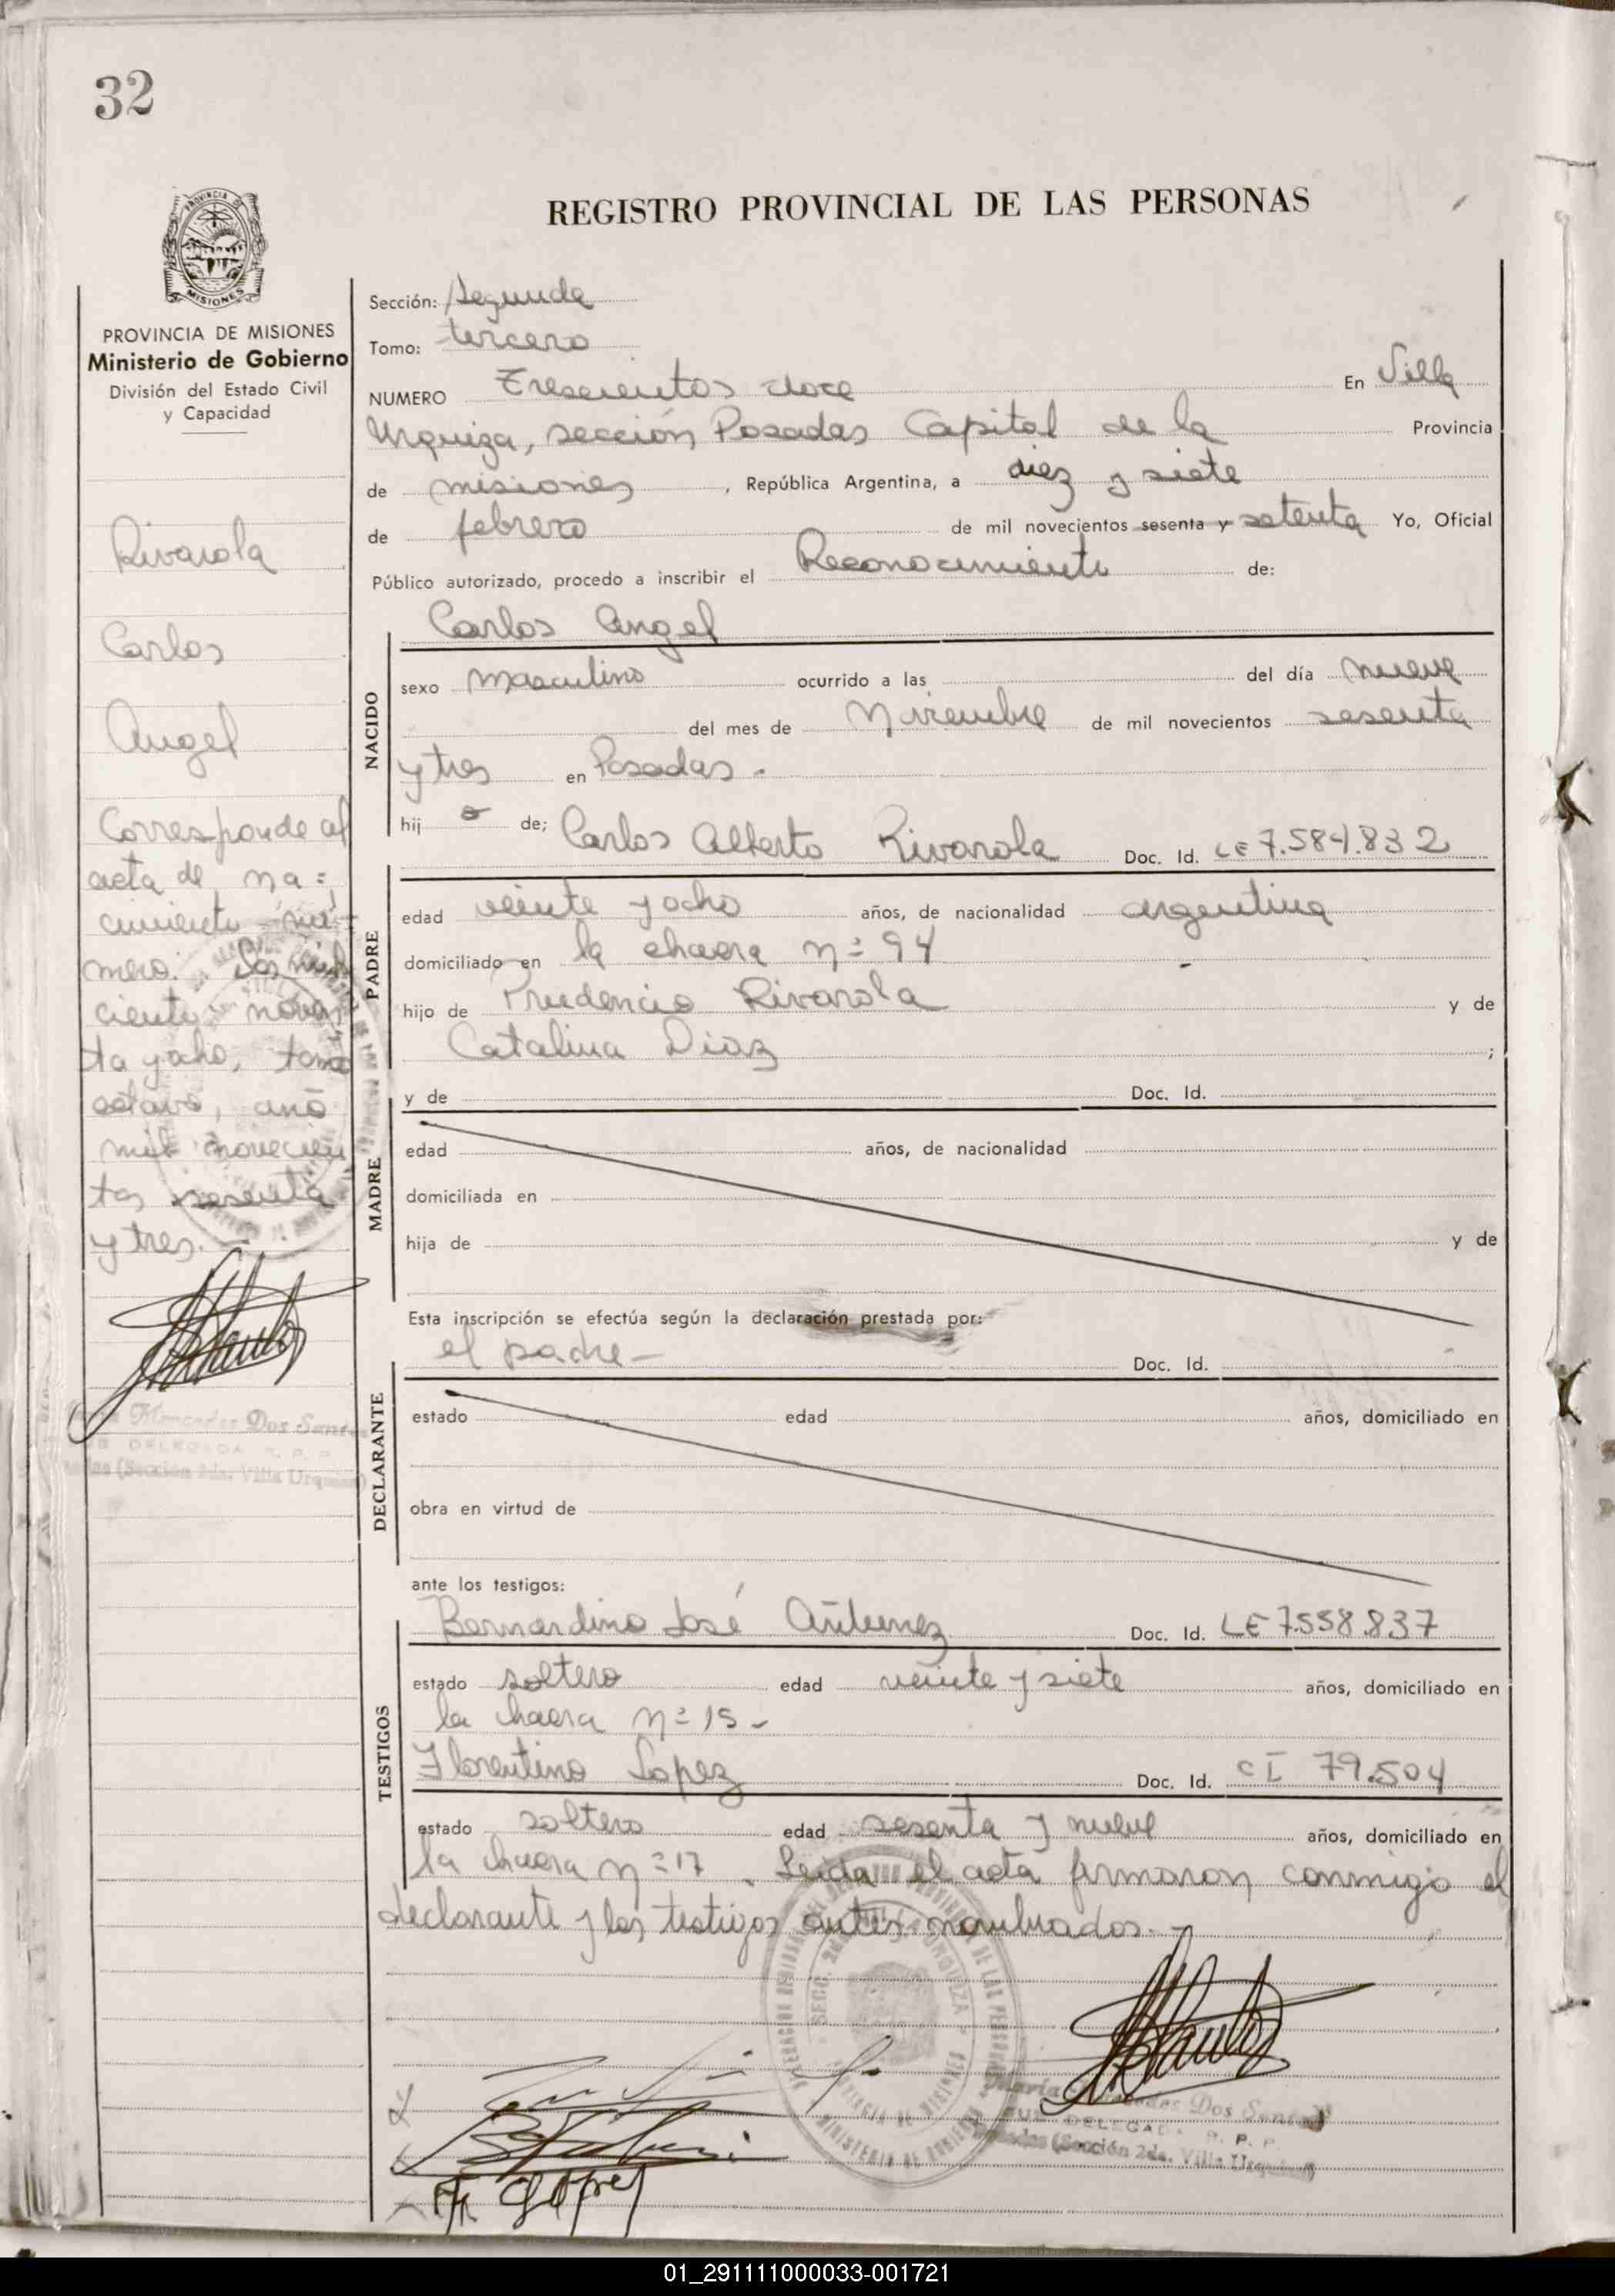 32
REGISTRO PROVINCIAL DE LAS PERSONAS
MISIONES
PROVINCIA DE MISIONES
Ministerio de Gobierno
División del Estado Civil
y Capacidad
Rivarola
Carlos
Angel
Corresponde al
acta de na=
cimiento nú
mero. Dos mil
ciento noven
ta y ocho, tomo
octavo, año
mil novecien
tos sesenta
y tres.
Mercedes Dos Santos
SUB DELEGADA R. P. P.
(Sección 2da. Villa Urquiza)
Sección: Segunda
Tomo: tercero
NUMERO Trescientos doce En Villa
Urquiza, sección Posadas Capital de la Provincia
de misiones , República Argentina, a diez y siete
de febrero de mil novecientos sesenta y setenta Yo, Oficial
Público autorizado, procedo a inscribir el Reconocimiento de:
Carlos Angel
NACIDO
sexo masculino ocurrido a las del día nueve
del mes de Noviembre de mil novecientos sesenta
y tres en Posadas.
hij o de; Carlos Alberto Rivarola Doc. Id. LE 7.584.832
PADRE
edad veinte y ocho años, de nacionalidad argentina
domiciliado en la chacra nº 94
hijo de Prudencio Rivarola y de
Catalina Diaz ;
y de Doc. Id.
MADRE
edad años, de nacionalidad
domiciliada en
hija de y de
Esta inscripción se efectúa según la declaración prestada por:
el padre - Doc. Id.
DECLARANTE
estado edad años, domiciliado en
obra en virtud de
ante los testigos:
Bernardino José Doc. Id. LE 7.558.837
TESTIGOS
estado soltero edad veinte y siete años, domiciliado en
la chacra nº 15 -
Florentino Lopez Doc. Id. CI 79.504
estado soltero edad sesenta y nueve años, domiciliado en
la chacra nº 17 . Leida el acta firmaron conmigo el
declarante y los testigos antes nombrados. -
María Mercedes Dos Santos
SUB DELEGADA R. P. P.
Posadas (Sección 2da. Villa Urquiza)
López
01_291111000033-001721